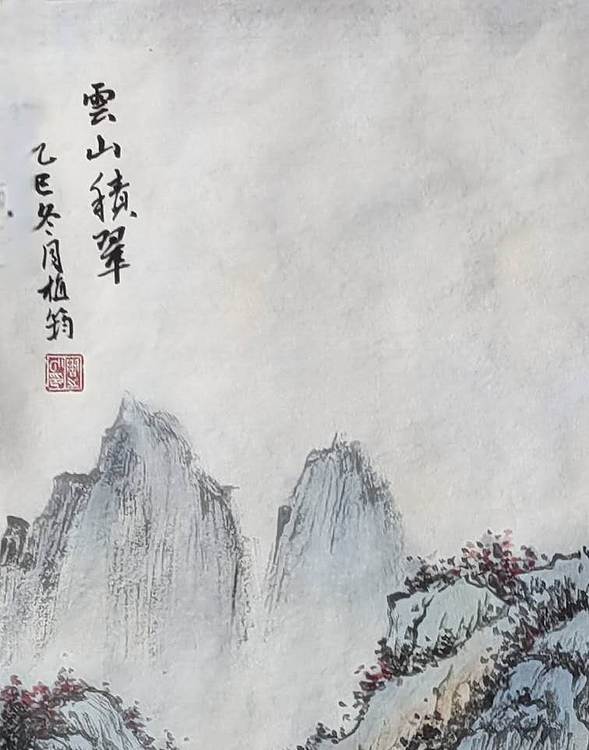 雲山積翠
乙巳冬月植筠